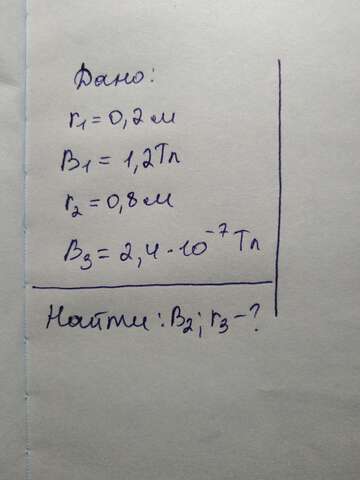 Дано:
r₁ = 0,2 м
B₁ = 1,2 Тл
r₂ = 0,8 м
B₃ = 2,4 · 10⁻⁷ Тл
Найти: B₂; r₃ - ?